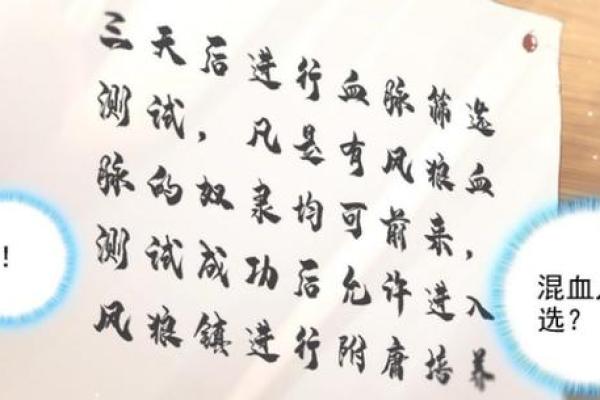 三天后进行血脉筛选
测试，凡是有风狼血
脉的奴隶均可前来，
测试成功后允许进入
风狼镇进行附庸培养
！
混血
选？